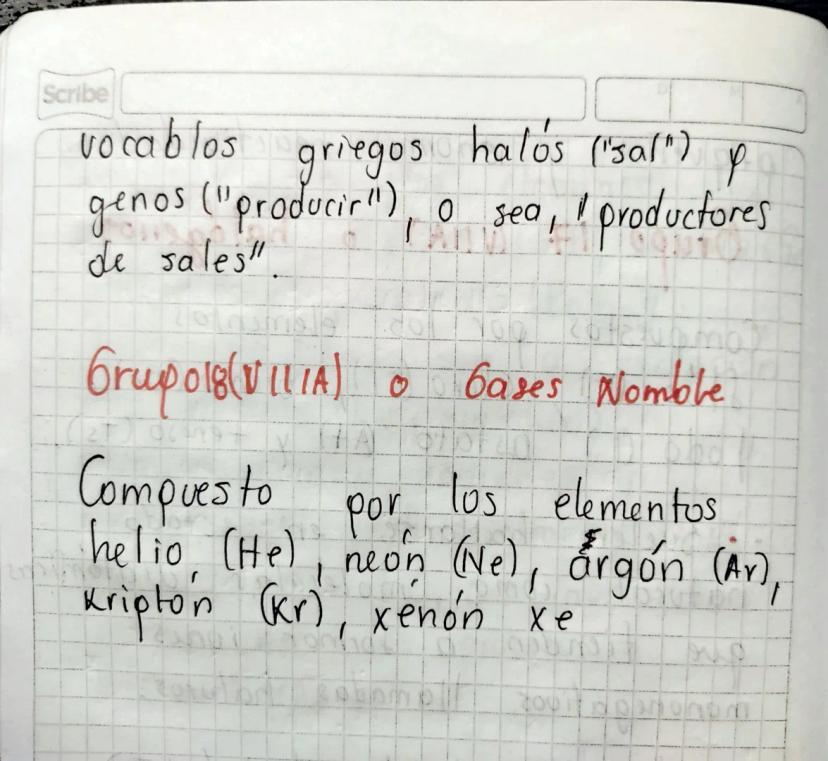 Scribe
vocablos griegos halós ("sal") y
genos ("producir"), o sea, "productores
de sales".
Grupo18(VIIIA) o Gases Nomble
Compuesto por los elementos
helio, (He), neón (Ne), árgón (Ar),
Kriptón (Kr), xenón xe